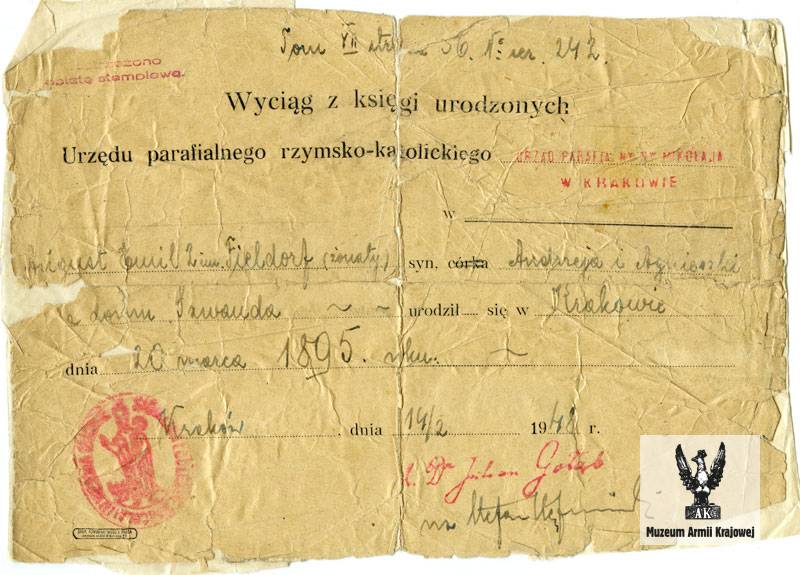 Tom VII str. 56 № ser. 242.
opłatę stemplową.
Wyciąg z księgi urodzonych
Urzędu parafialnego rzymsko-katolickiego URZĄD PARAFJALNY ŚW. MIKOŁAJA
W KRAKOWIE
w
August Emil 2 im. Fieldorf (żonaty) syn, córka Andrzeja i Agnieszki
z domu Szwanda ~ ~ urodził się w Krakowie
dnia 20 marca 1895. roku. ~
Kraków, dnia 14/2 1948 r.
Dr Julian Gołąb
Stefan
AK
Muzeum Armii Krajowej